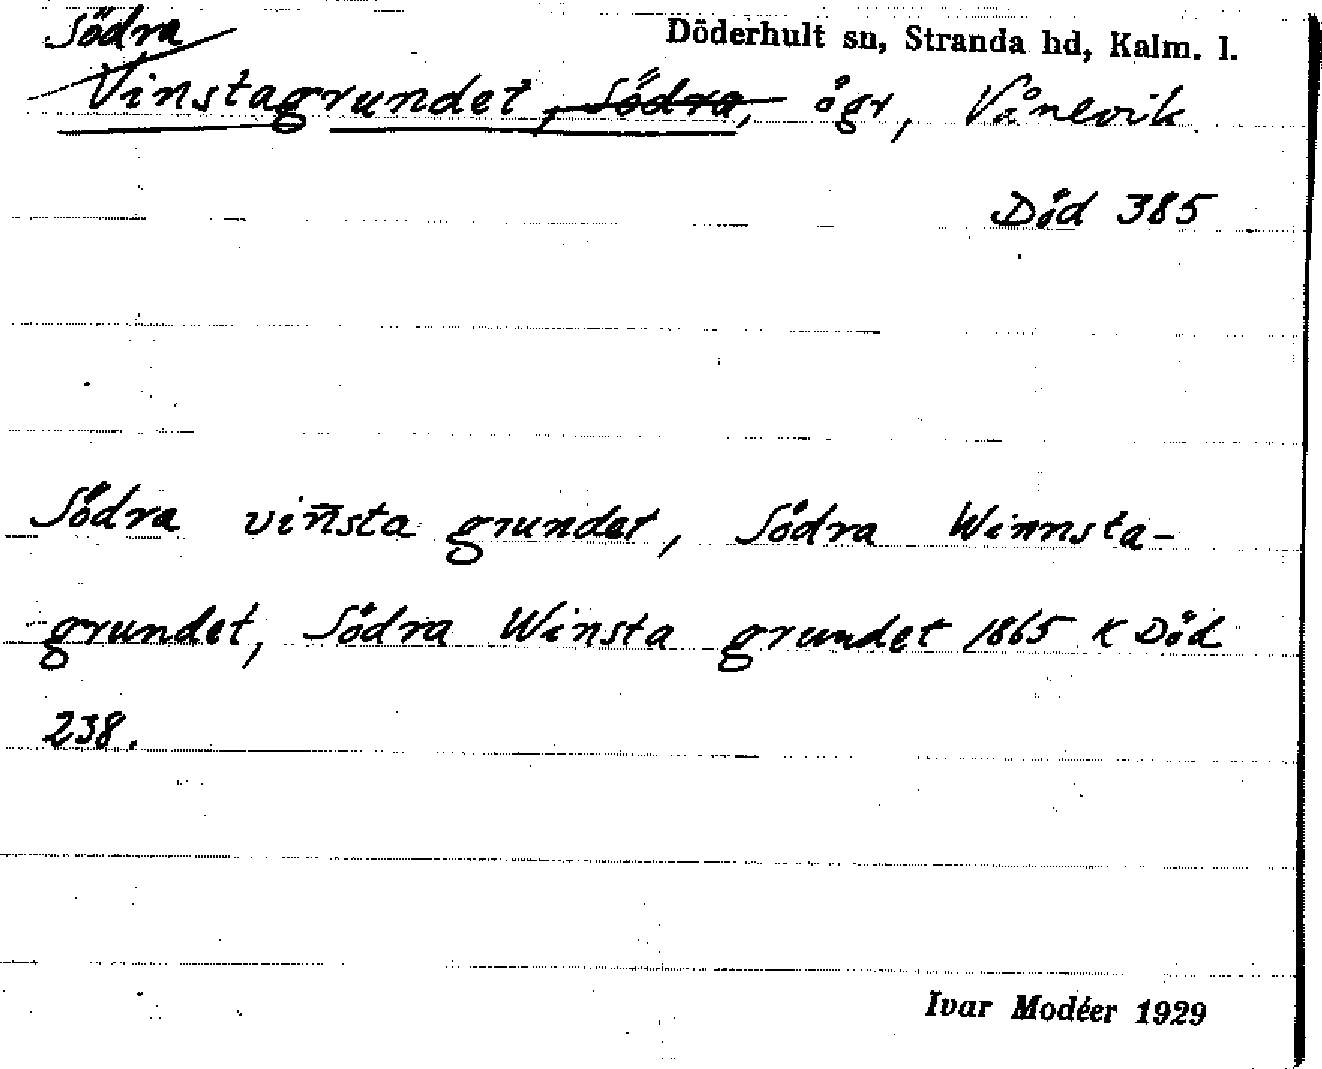 Södra
Döderhult sn, Stranda hd, Kalm. l.
Vinstagrundet, Södra, ögr, Vånevik
Död 385
Södra vin̄sta grundet, Södra Winnsta-
grundet, Södra Winsta grundet 1865 K Död
238.
Ivar Modéer 1929